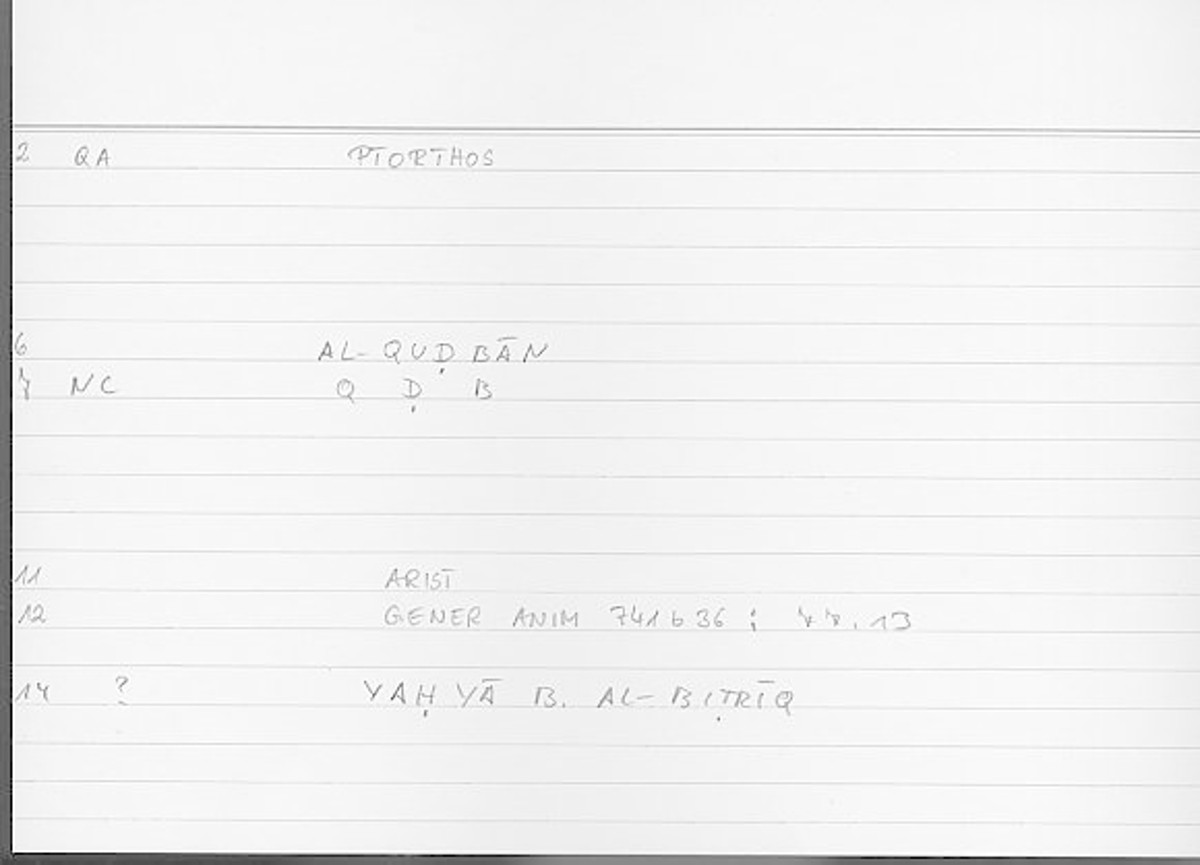 2 QA PTORTHOS
6 AL-QUḌBĀN
7 NC Q Ḍ B
11 ARIST
12 GENER ANIM 741 b 36 ; 77.13
14 ? YAḤYĀ B. AL-BIṬRĪQ